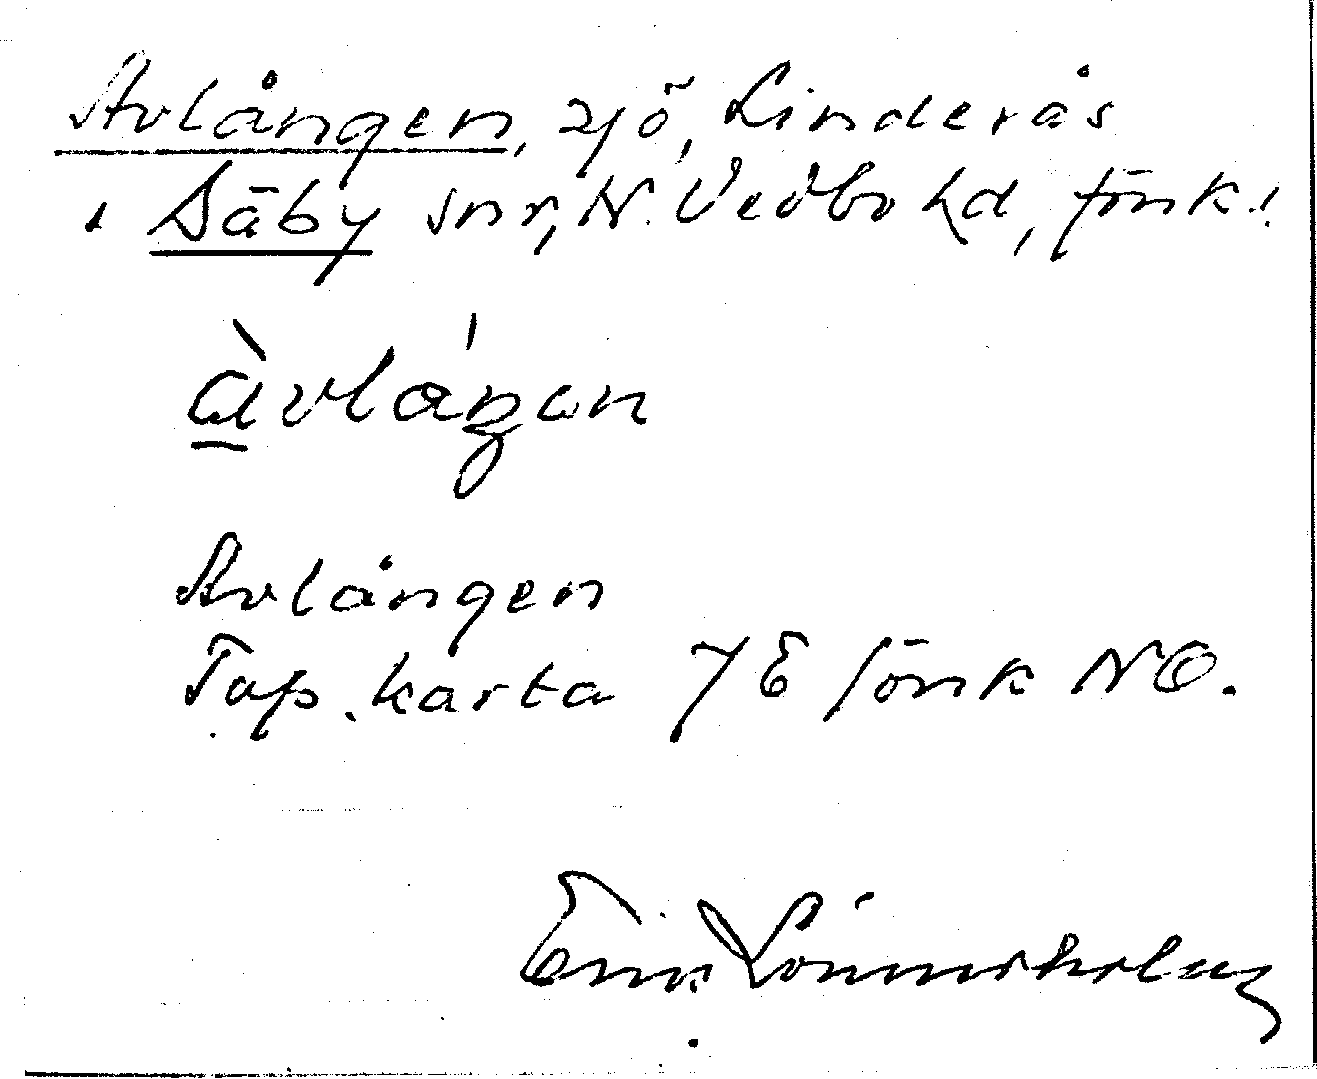 Avlången, sjö, Linderås
& Säby snr, N. Vedbo hd, Jönk.l.
àvláŋən
Avlången
Top. karta 7E Jönk NO.
Erik